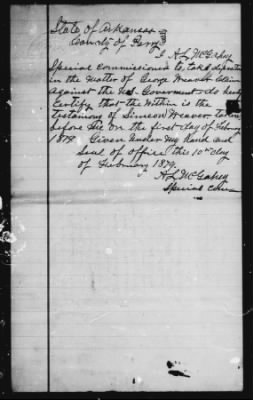 State of Arkansas
County of Perry
I A L McGahey
Special commissioner to take deposition
in the Matter of George Weaver Claim
against the U.S. Goverment do herby
Certify that the within is the
testamony of Simeon Weaver taken
before Me on the first day of Februry
1879. Given under My hand and
Seal of office this 10th day
of February 1879.
A L McGahey
Special com